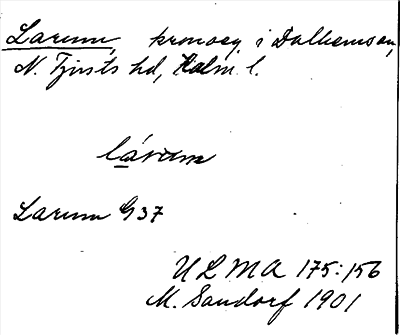 Larum, kronoeg. i Dalhems sn,
N. Tjusts hd, Kalm. l.
lárum
Larum G 37
ULMA 175:156
M. Sandorf 1901